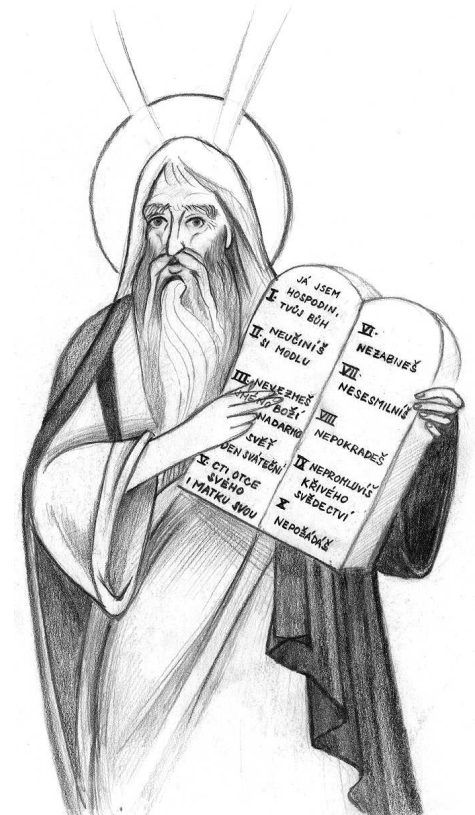 JÁ JSEM
I. HOSPODIN,
TVŮJ BŮH
II. NEUČINÍŠ
SI MODLU
III. NEVEZMEŠ
JMÉNO BOŽÍ
NADARMO
SVĚŤ
DEN SVÁTEČNÍ
V. CTI OTCE
SVÉHO
I MATKU SVOU
VI.
NEZABIJEŠ
VII.
NESESMILNÍŠ
VIII
NEPOKRADEŠ
IX NEPROMLUVÍŠ
KŘIVÉHO
SVĚDECTVÍ
X
NEPOŽÁDÁŠ